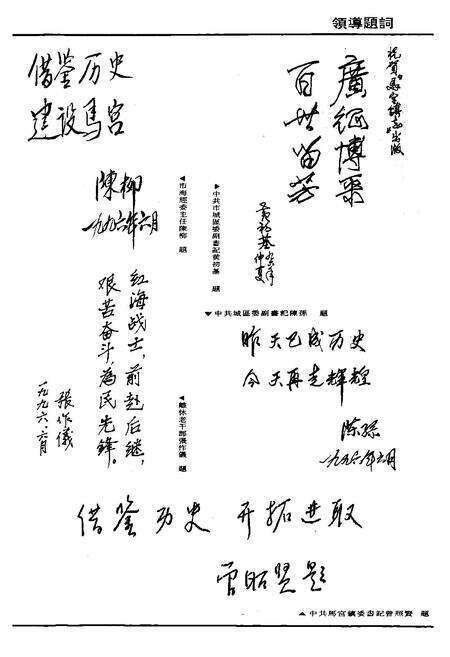 領導題詞
祝賀馬宮鎮志出版
廣徵博采
百世留芳
黃初基 九六年仲夏
▶中共市城區委副書記黃初基 題
◀市海經委主任陳柳 題
借鉴历史
建设馬宮
陳柳
一九九六年六月
▼中共城區委副書記陳孫 題
昨天已成历史
今天再走辉煌
陈孙
一九九六年六月
◀離休老干部張作儀 題
红海战士,前赴后继,
艰苦奋斗,為民先鋒。
張作儀
一九九六、六月
借鉴历史 开拓进取
曾昭贤题
▲中共馬宮鎮委書記曾照賢 題